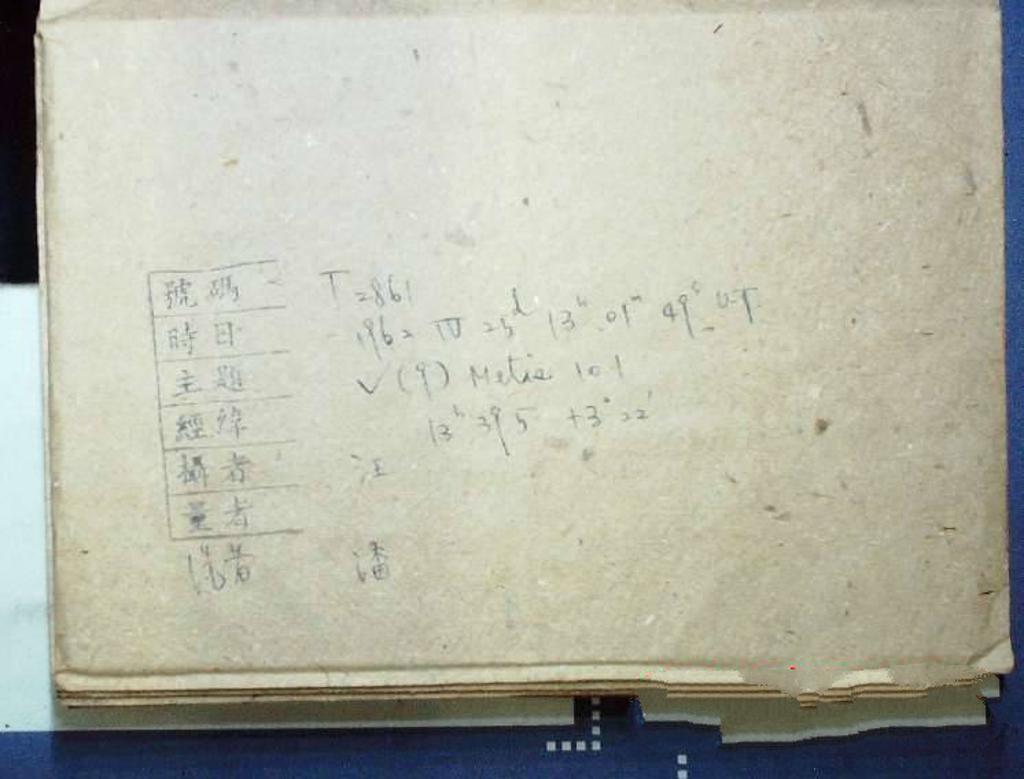 號碼 T2861
時日 1962 IV 25d 13h 01m 49s U.T.
主題 ✓ (9) Metis 101
經緯 13h 39m.5 +3° 22'
攝者 汪
量者
洗者 潘